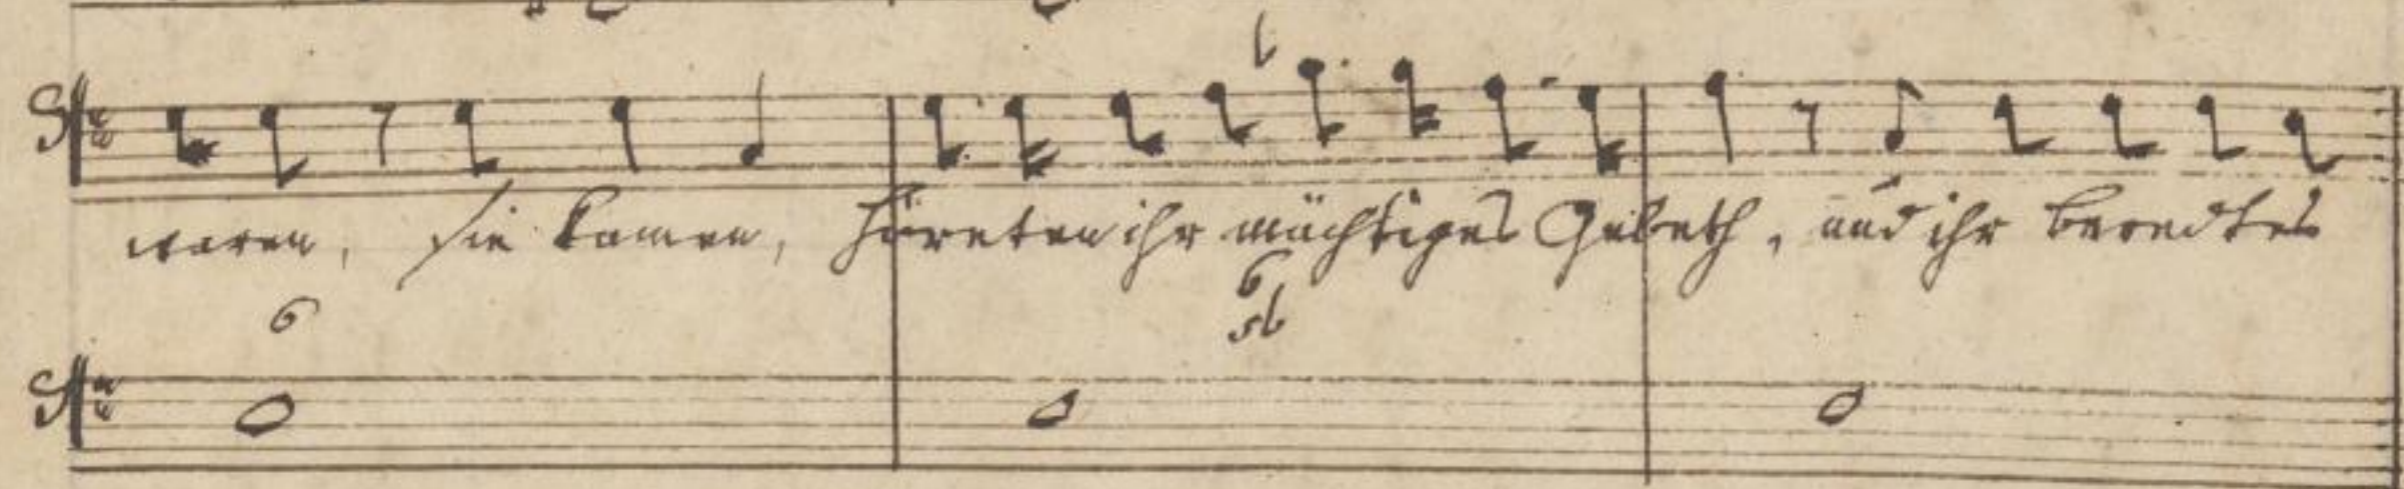 waren, sie kamen, höreten ihr mächtiges Gebeth, und ihr beredtes
6 6
5b